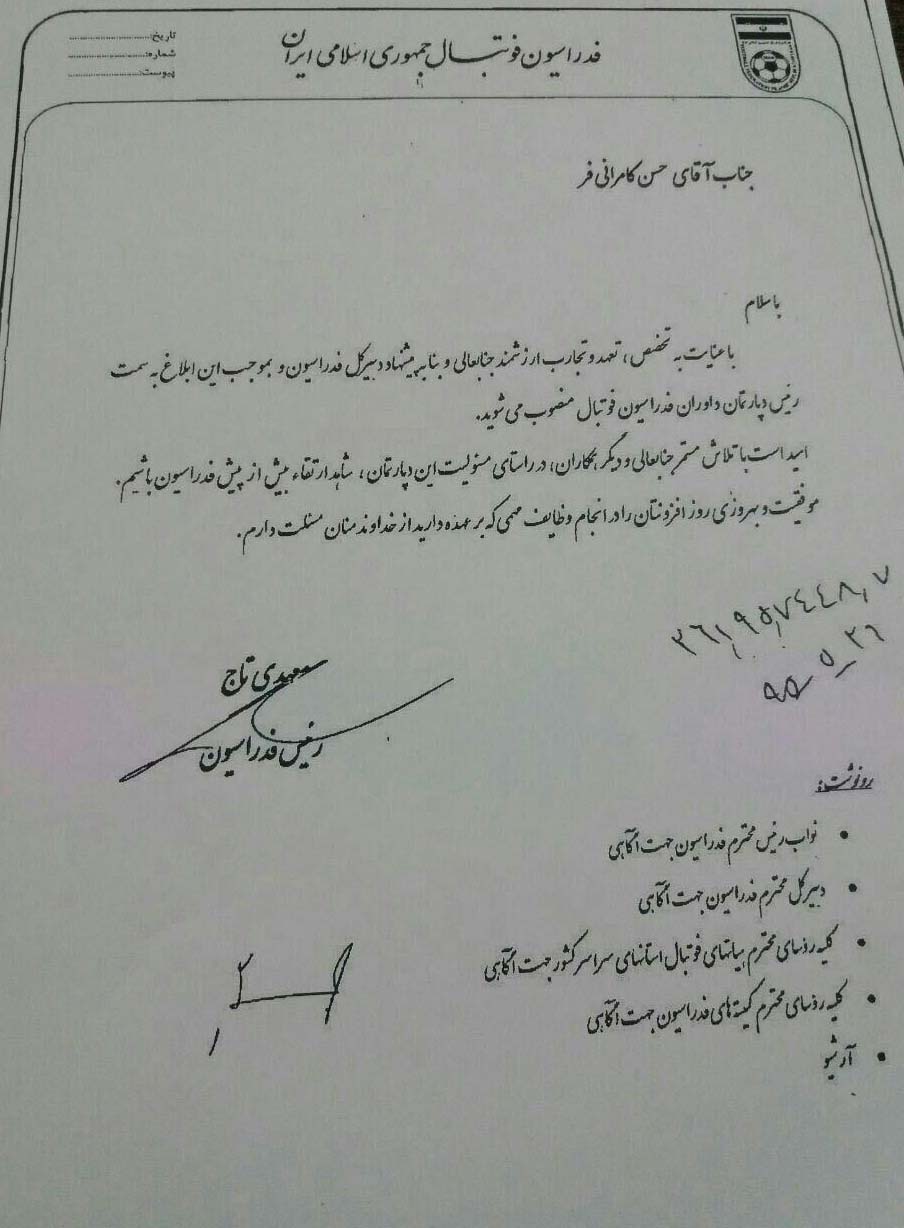 فدراسیون فوتبال جمهوری اسلامی ایران
تاریخ:
شماره:
پیوست:
جناب آقای حسن کامرانی فر
باسلام
با عنایت به تخصص، تعهد و تجارب ارزشمند جنابعالی و بنا به پیشنهاد دبیرکل فدراسیون و بموجب این ابلاغ به سمت
رئیس دپارتمان داوران فدراسیون فوتبال منصوب می شوید.
امید است با تلاش مستمر جنابعالی و دیگر همکاران، در راستای مسئولیت این دپارتمان، شاهد ارتقاء بیش از پیش فدراسیون باشیم.
موفقیت و بهروزی روز افزونتان را در انجام وظایف مهمی که بر عهده دارید از خداوند منان مسئلت دارم.
مهدی تاج
رئیس فدراسیون
رونوشت:
• نواب رئیس محترم فدراسیون جهت آگاهی
• دبیرکل محترم فدراسیون جهت آگاهی
• کلیه رؤسای محترم هیاتهای فوتبال استانهای سراسر کشور جهت آگاهی
• کلیه رؤسای محترم کمیته های فدراسیون جهت آگاهی
• آرشیو